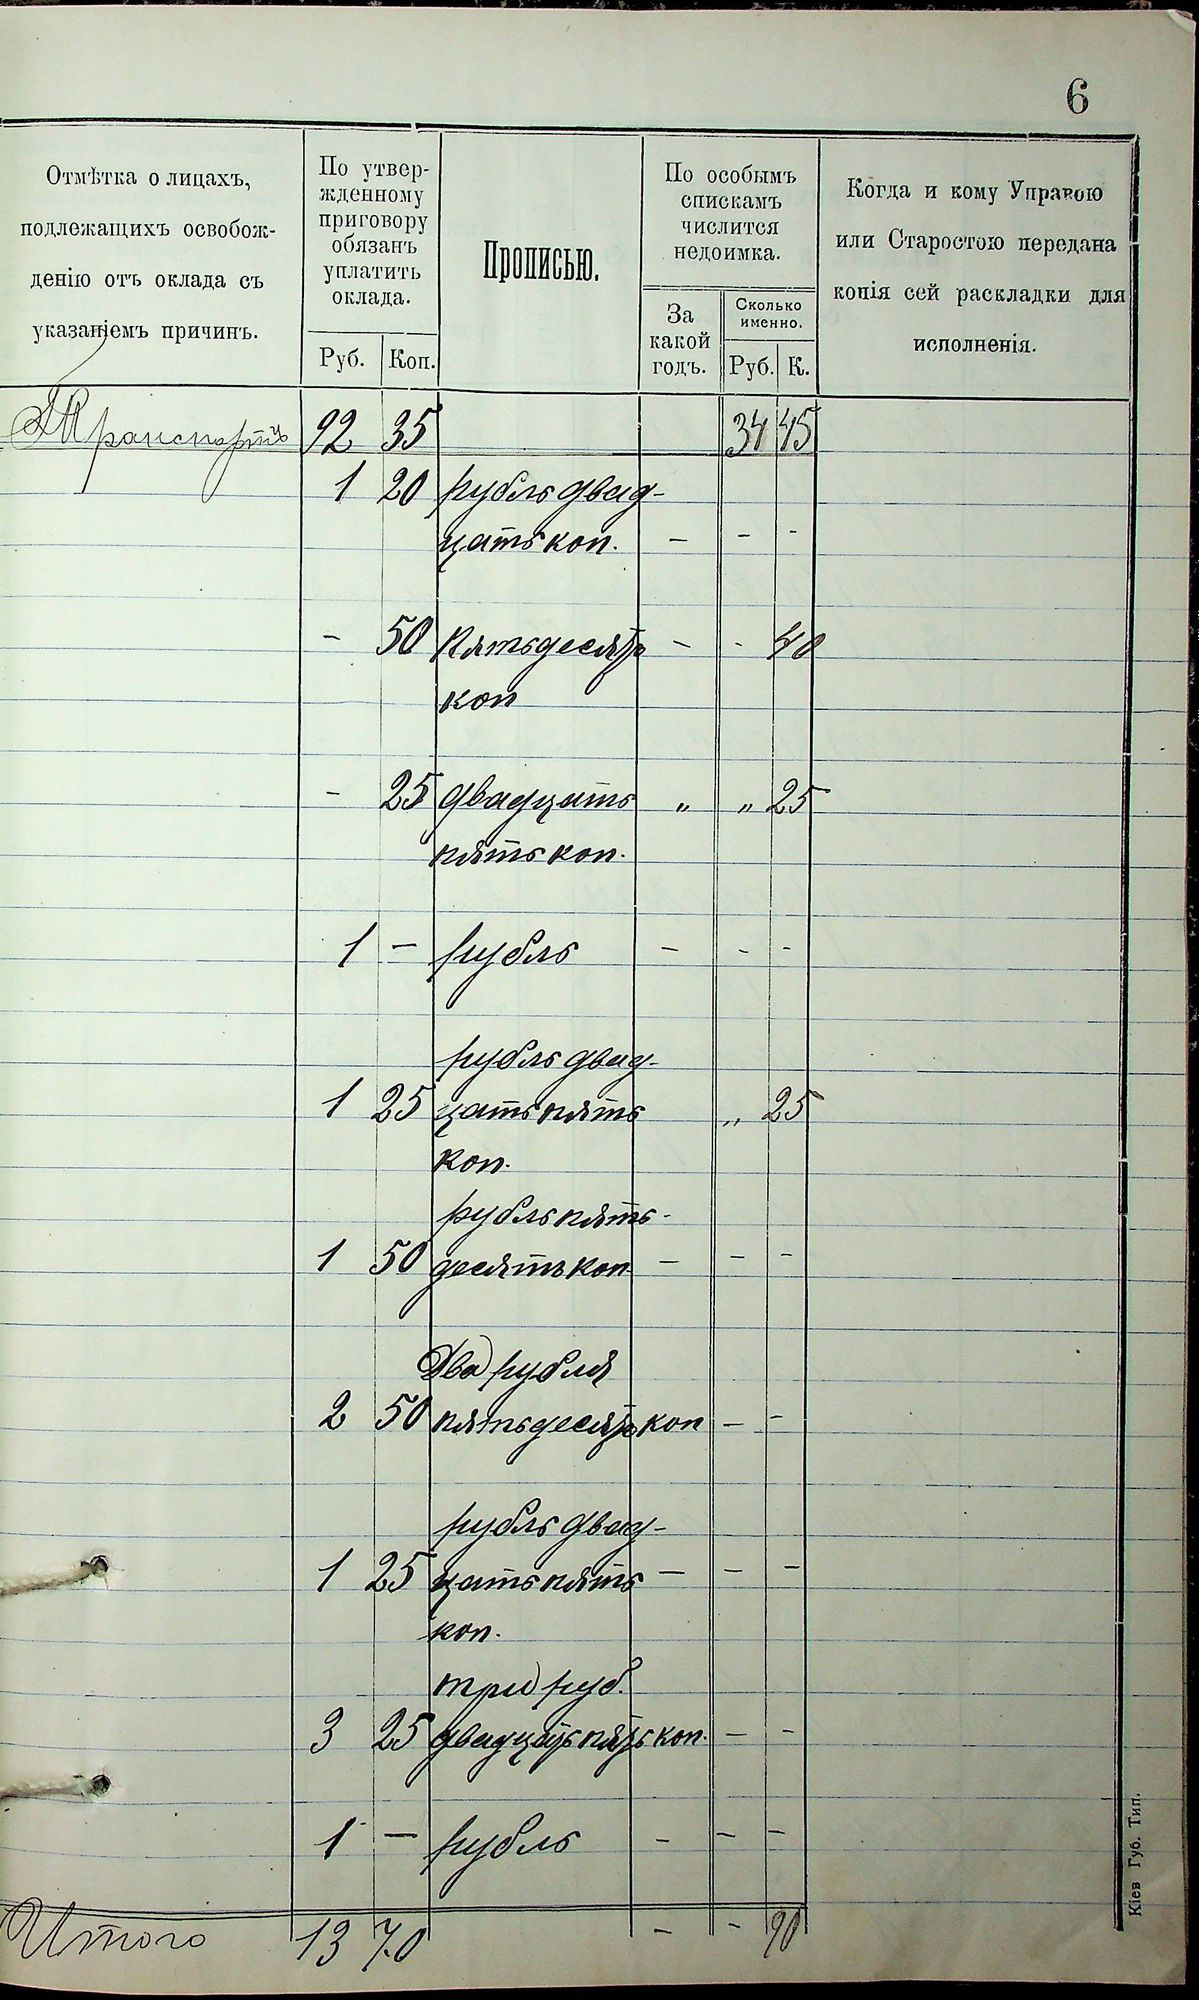 6
Отмѣтка о лицахъ,
подлежащихъ освобож-
денію отъ оклада съ
указаніемъ причинъ.
По утвер-
жденному
приговору
обязанъ
уплатить
оклада.
Руб. Коп.
Прописью.
По особымъ
спискамъ
числится
недоимка.
За
какой
годъ.
Сколько
именно.
Руб. К.
Когда и кому Управою
или Старостою передана
копія сей раскладки для
исполненія.
Транспортъ 92 35 34 45
1 20 рубль двад-
цать коп. - - -
- 50 пятьдесятъ - - 40
коп
- 25 двадцать „ „ 25
пять коп.
1 - рубль - - -
рубль двад-
1 25 цать пять „ 25
коп.
рубль пять-
1 50 десятъ коп - - -
Два рубля
2 50 пятьдесятъ коп - -
рубль двад-
1 25 цать пять - - -
коп.
три руб.
3 25 двадцать пять коп. - -
1 - рубль - - -
Итого 13 70 - - 90
Кіев Губ. Тип.